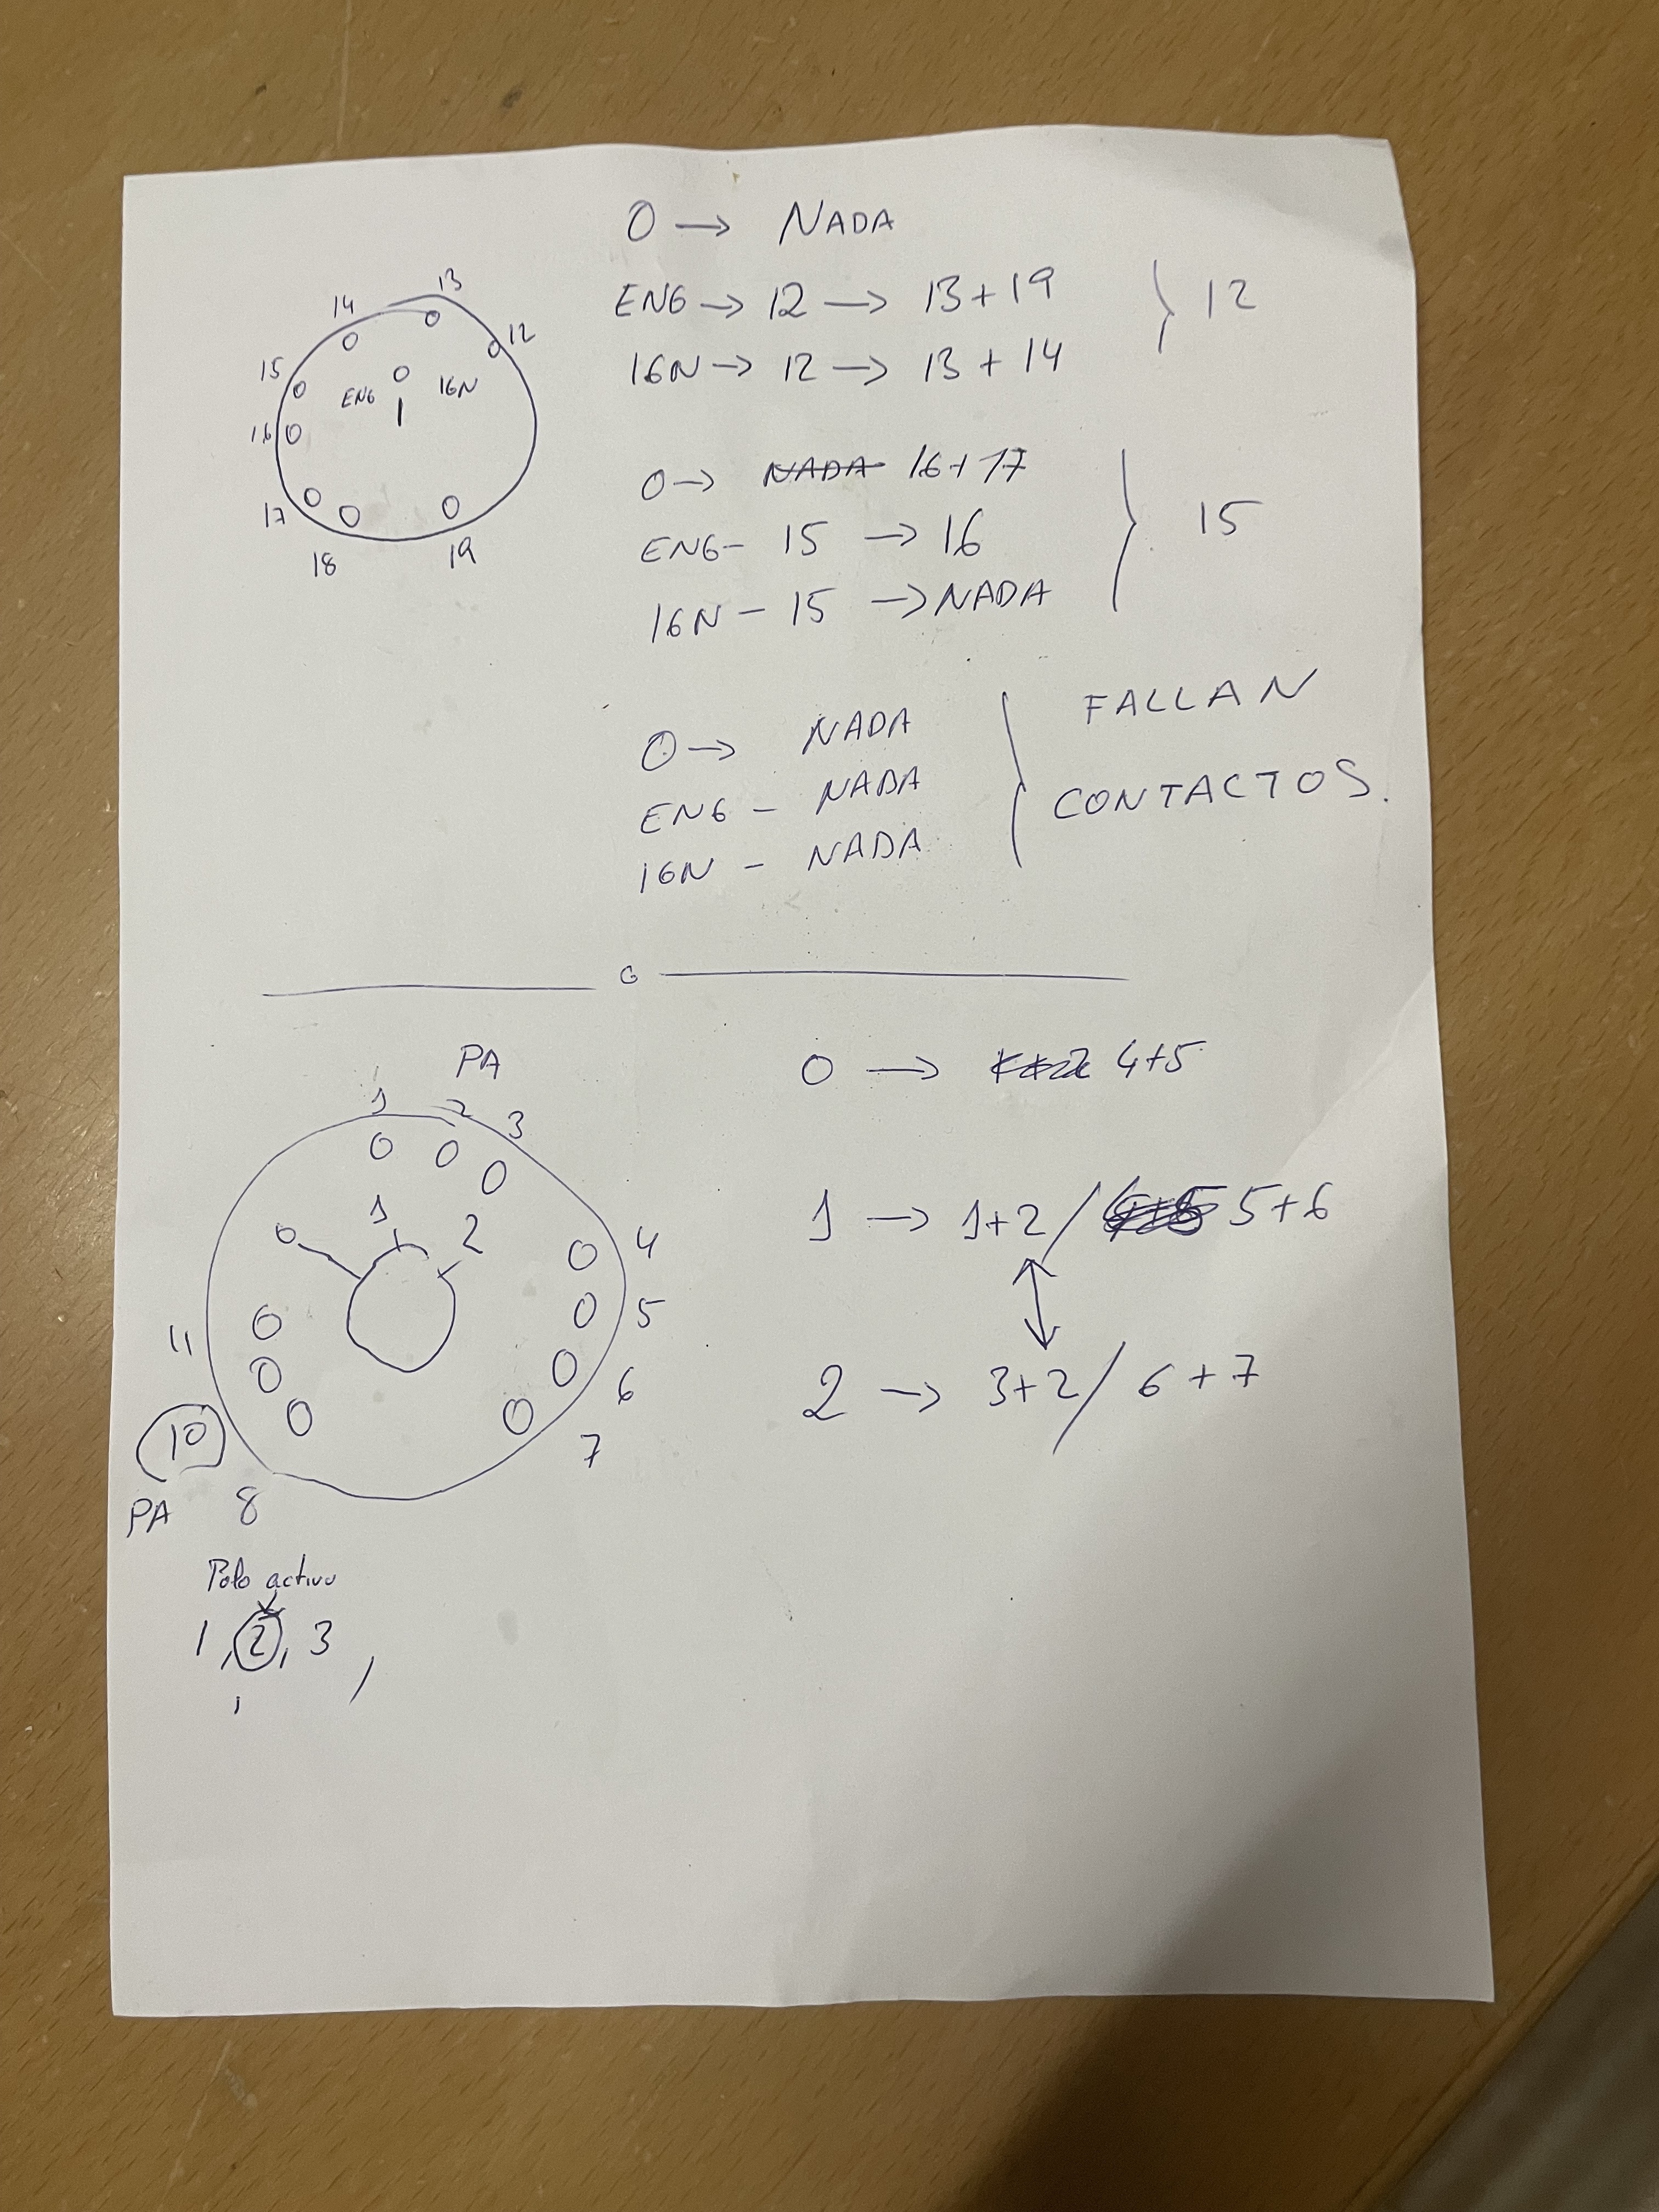 0 → NADA
ENG → 12 → 13+19 } 12
IGN → 12 → 13 + 14
14 13 12
15
16
17
18 19
ENG 0 IGN
0 → NADA 16+17
ENG- 15 → 16 } 15
IGN - 15 → NADA
0 → NADA
ENG - NADA
IGN - NADA
FALLAN
CONTACTOS.
PA
1 2 3
0 1 2
4
5
6
7
11
10
PA 8
Polo activo
1, 2, 3,
0 → 4+5
1 → 1+2 / 5+6
2 → 3+2 / 6+7